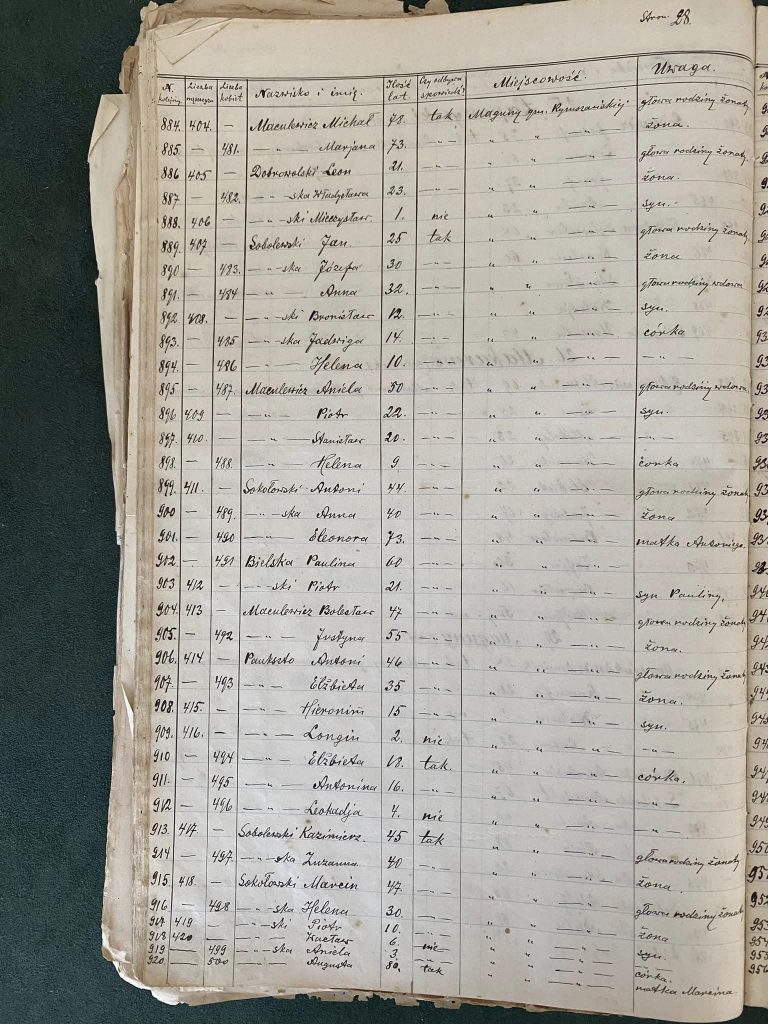 Stron. 28.
N. kolejny Liczba mężczyzn Liczba kobiet Nazwisko i imię. Ilość lat. Czy odbywa spowiedź Miejscowość. Uwaga.
884. 404. — Maculewicz Michał 78. tak Maguny gm. głowa rodziny żonaty
885. — 481. —„— Marjana 73. —„— „ „ —„— żona.
886 405 — Dobrowolski Leon 21. —„— „ „ —„— głowa rodziny żonaty.
887 — 482. —„—ska Władysława 23. —„— „ „ —„— żona.
888. 406 — —„—ski Mieczysław. 1. nie „ „ —„— syn.
889. 407 — Sobolewski Jan. 25 tak „ „ —„— głowa rodziny żonaty
890 — 483. —„—ska Józefa 30 —„— „ „ —„— żona
891. — 484 —„— Anna 32. —„— „ „ —„— głowa rodziny wdowa
892. 408. — —„—ski Bronisław 12. —„— „ „ —„— syn.
893. — 485 —„—ska Jadwiga 14. —„— „ „ —„— córka
894. — 486 —„— Helena 10. —„— „ „ —„— —„—
895 — 487. Maculewicz Aniela 50 —„— „ „ —„— głowa rodziny wdowa
896 409 — —„— Piotr 22. —„— „ „ —„— syn.
897. 410. — —„— Stanisław 20. —„— „ „ —„— —„—
898. — 488. —„— Helena 9. —„— „ „ —„— córka
899. 411. — Sokołowski Antoni 44. —„— „ „ —„— głowa rodziny żonaty
900 — 489. —„—ska Anna 40 —„— „ „ —„— żona
901. — 490 —„— Eleonora 73. —„— „ „ —„— matka Antoniego.
902. — 491 Bielska Paulina 60 —„— „ „ —„—
903 412 — —„—ski Piotr 21. —„— „ „ —„— syn Pauliny.
904. 413 — Maculewicz Bolesław 47 —„— „ „ —„— głowa rodziny żonaty
905. — 492 —„— Justyna 55 —„— „ „ —„— żona.
906. 414 — Paukszto Antoni 46 —„— „ „ —„— głowa rodziny żonaty
907. — 493 —„— Elżbieta 35 —„— „ „ —„— żona.
908. 415. — —„— Hieronim 15 —„— „ „ —„— syn.
909. 416. — —„— Longin 2. nie „ „ —„— —„—
910 — 494 —„— Elżbieta 18. tak. „ „ —„— córka.
911. — 495 —„— Antonina 16. —„— „ „ —„— —„—
912 — 496 —„— Leokadja 4. nie „ „ —„— —„—
913. 417. — Sobolewski Kazimierz. 45 tak „ „ —„— głowa rodziny żonaty
914 — 497. —„—ska Zuzanna 40 —„— „ „ —„— żona.
915. 418. — Sokołowski Marcin 47. —„— „ „ —„— głowa rodziny żonaty
916 — 498 —„—ska Helena 30. —„— „ „ —„— żona
917 419 — —„—ski Piotr 10. —„— „ „ —„— syn.
918 420 — —„— Wacław 6. nie „ „ —„— —„—
919 — 499 —„—ska Aniela 3. —„— „ „ —„— córka.
920. — 500 —„— Augusta 80. tak „ „ —„— matka Marcina.